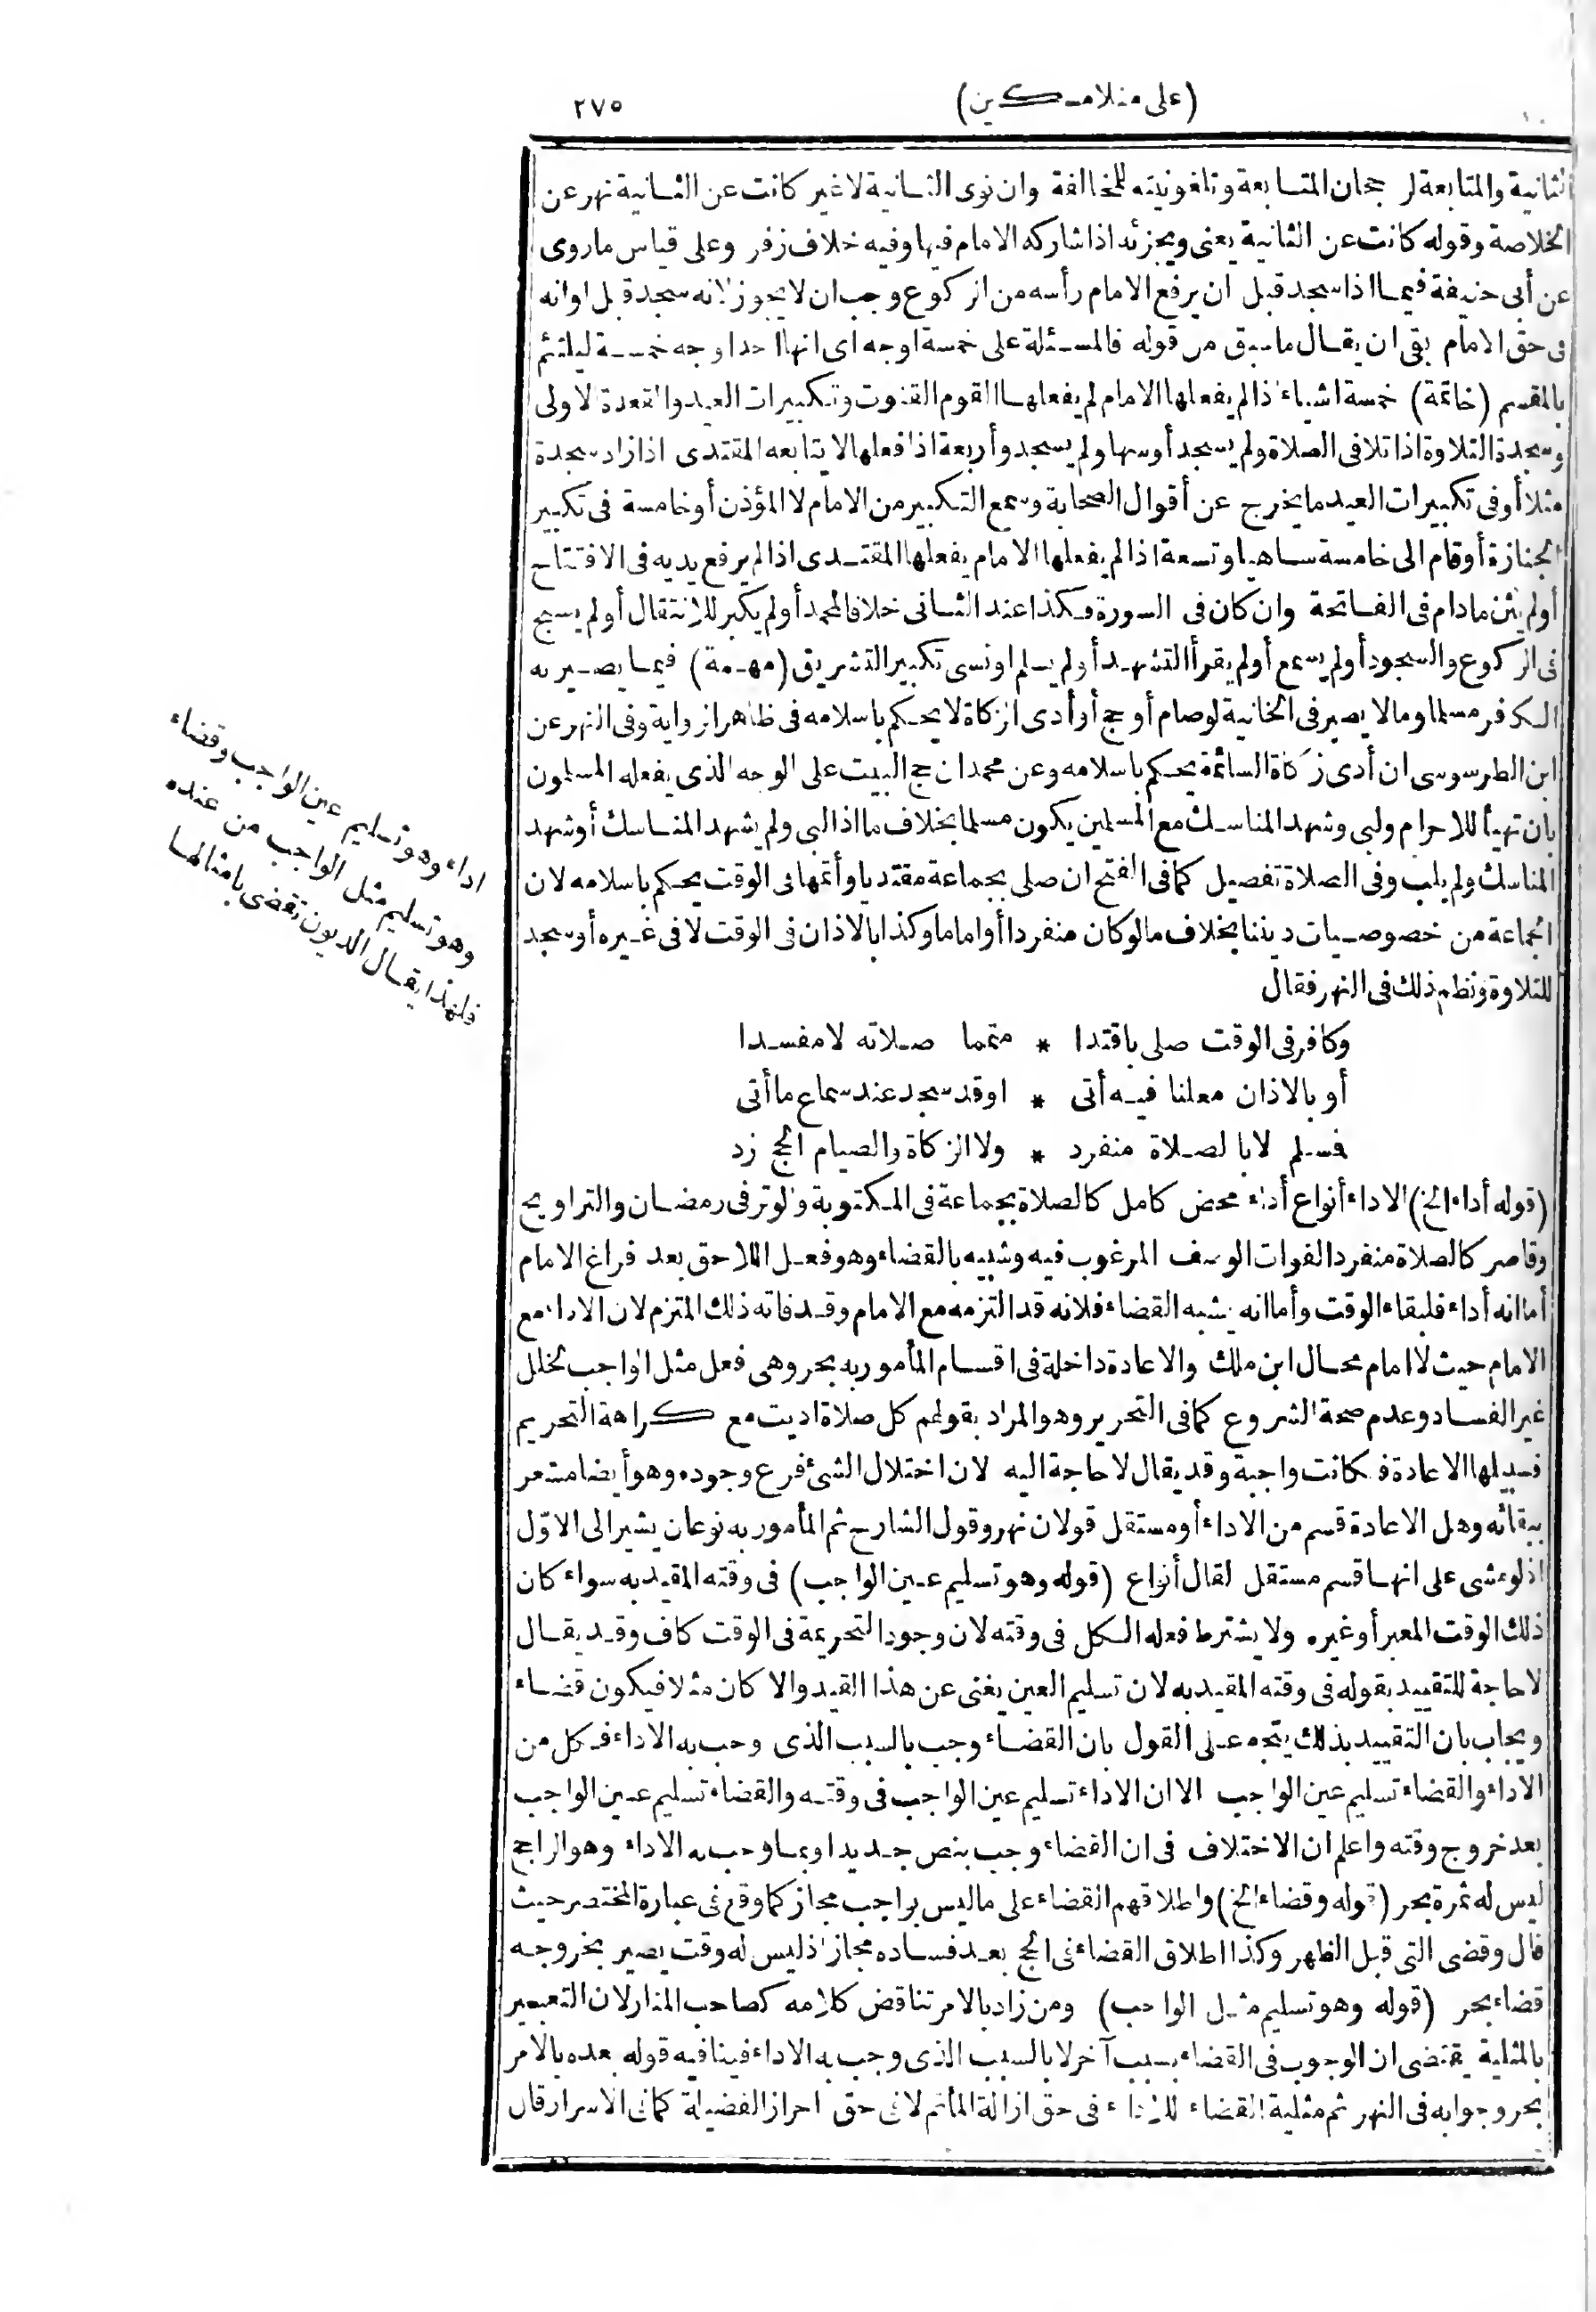 (على منلا مسكين)
٢٧٥
الثانية والمتابعة لرجحان المتابعة وتلغو نيته للمخالفة وان نوى الثانية لا غير كانت عن الثانية نهر عن
الخلاصة وقوله كانت عن الثانية يعنى ويجزئه اذا شاركه الامام فيها وفيه خلاف زفر وعلى قياس ما روى
عن أبى حنيفة فيما اذا سجد قبل ان يرفع الامام رأسه من الركوع وجب ان لا يجوز لانه سجد قبل اوانه
فى حق الامام بقى ان يقال ما سبق من قوله فالمسئلة على خمسة اوجه اى انها احد اوجه خمسة ليلتئم
بالمقسم (خاتمة) خمسة اشياء اذا لم يفعلها الامام لم يفعلها القوم القنوت وتكبيرات العيد والقعدة الاولى
وسجدة التلاوة اذا تلا فى الصلاة ولم يسجد أو سها ولم يسجد وأربعة اذا فعلها لا يتابعه المقتدى اذا زاد سجدة
مثلا أو فى تكبيرات العيد ما يخرج عن أقوال الصحابة وسمع التكبير من الامام لا المؤذن أو خامسة فى تكبير
الجنازة أو قام الى خامسة ساهيا وتسعة اذا لم يفعلها الامام يفعلها المقتدى اذا لم يرفع يديه فى الافتتاح
أو لم يثن ما دام فى الفاتحة وان كان فى السورة فكذا عند الثانى خلافا لمحمد أو لم يكبر للانتقال أو لم يسبح
فى الركوع والسجود أو لم يسمع أو لم يقرأ التشهد أو لم يسلم او نسى تكبير التشريق (مهمة) فيما يصير به
الكافر مسلما وما لا يصير فى الخانية لو صام أو حج أو أدى الزكاة لا يحكم باسلامه فى ظاهر الرواية وفى النهر عن
ابن الطرسوسى ان أدى زكاة السائمة يحكم باسلامه وعن محمد ان حج البيت على الوجه الذى يفعله المسلمون
بان تهيأ للاحرام ولبى وشهد المناسك مع المسلمين يكون مسلما بخلاف ما اذا لبى ولم يشهد المناسك أو شهد
المناسك ولم يلب وفى الصلاة تفصيل كما فى الفتح ان صلى بجماعة مقتديا وأتمها فى الوقت يحكم باسلامه لان
الجماعة من خصوصيات ديننا بخلاف ما لو كان منفردا أو اماما وكذا بالاذان فى الوقت لا فى غيره أو سجد
للتلاوة ونظم ذلك فى النهر فقال
وكافر فى الوقت صلى باقتدا * متمما صلاته لا مفسدا
أو بالاذان معلنا فيه أتى * او قد سجد عند سماع ما أتى
فسلم لا بالصلاة منفرد * ولا الزكاة والصيام الحج زد
(قوله أداء الخ) الاداء أنواع أداء محض كامل كالصلاة بجماعة فى المكتوبة والوتر فى رمضان والتراويح
وقاصر كالصلاة منفردا لفوات الوصف المرغوب فيه وشبيه بالقضاء وهو فعل اللاحق بعد فراغ الامام
أما انه أداء فلبقاء الوقت وأما انه يشبه القضاء فلانه قد التزمه مع الامام وقد فاته ذلك الملتزم لان الاداء مع
الامام حيث لا امام محال ابن ملك والاعادة داخلة فى اقسام المأمور به بحر وهى فعل مثل الواجب لخلل
غير الفساد وعدم صحة الشروع كما فى التحرير وهو المراد بقولهم كل صلاة اديت مع كراهة التحريم
فسبيلها الاعادة فكانت واجبة وقد يقال لا حاجة اليه لان اختلال الشئ فرع وجوده وهو أيضا مشعر
ببقائه وهل الاعادة قسم من الاداء أو مستقل قولان نهر وقول الشارح ثم المأمور به نوعان يشير الى الاوّل
اذ لو مشى على انها قسم مستقل لقال أنواع (قوله وهو تسليم عين الواجب) فى وقته المقيد به سواء كان
ذلك الوقت المعبر أو غيره ولا يشترط فعله الكل فى وقته لان وجود التحريمة فى الوقت كاف وقد يقال
لا حاجة للتقييد بقوله فى وقته المقيد به لان تسليم العين يغنى عن هذا القيد والا كان مثلا فيكون قضاء
ويجاب بان التقييد بذلك يتجه على القول بان القضاء وجب بالسبب الذى وجب به الاداء فكل من
الاداء والقضاء تسليم عين الواجب الا ان الاداء تسليم عين الواجب فى وقته والقضاء تسليم عين الواجب
بعد خروج وقته واعلم ان الاختلاف فى ان القضاء وجب بنص جديد او بما وجب به الاداء وهو الراجح
ليس له ثمرة بحر (قوله وقضاء الخ) واطلاقهم القضاء على ما ليس بواجب مجاز كما وقع فى عبارة المختصر حيث
قال وقضى التى قبل الظهر وكذا اطلاق القضاء فى الحج بعد فساده مجاز اذ ليس له وقت يصير بخروجه
قضاء بحر (قوله وهو تسليم مثل الواجب) ومن زاد بالامر تناقض كلامه كصاحب المنار لان التعبير
بالمثلية يقتضى ان الوجوب فى القضاء بسبب آخر لا بالسبب الذى وجب به الاداء فينافيه قوله بعده بالامر
بحر وجوابه فى النهر ثم مثلية القضاء للاداء فى حق ازالة المأثم لا فى حق احراز الفضيلة كما فى الاسرار قال
اداء وهو تسليم عين الواجب وقضاء
وهو تسليم مثل الواجب من عنده
فلهذا يقال الديون تقضى بامثالها